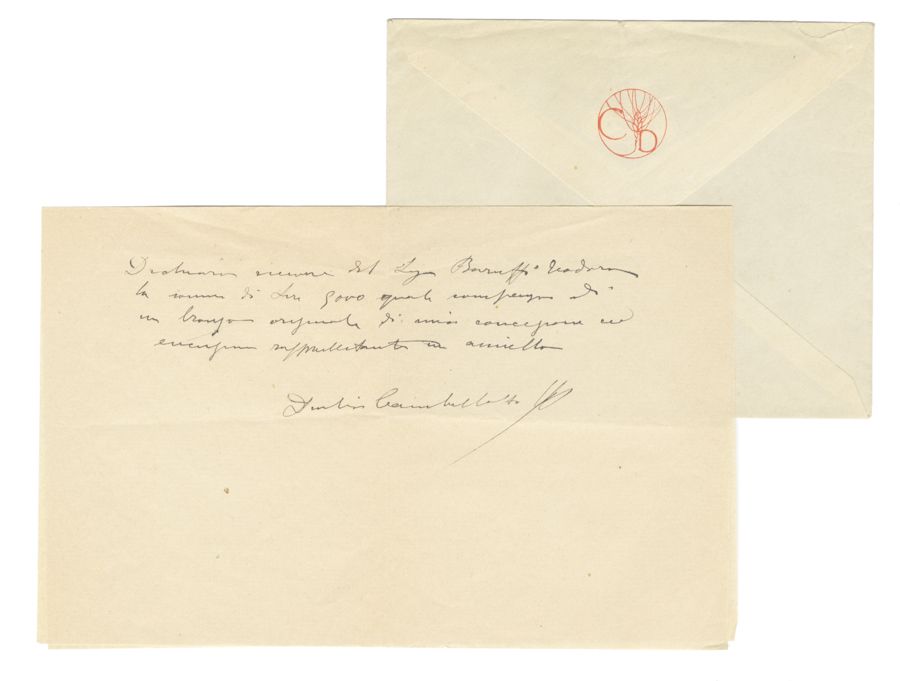 C D
Dichiaro ricevere dal Sigr Baruffi Teodoro
la somma di Lire 5000 quale compenso di
un bronzo originale di mia concezione ed
esecuzione rappresentante un agnello
Duilio Cambellotti